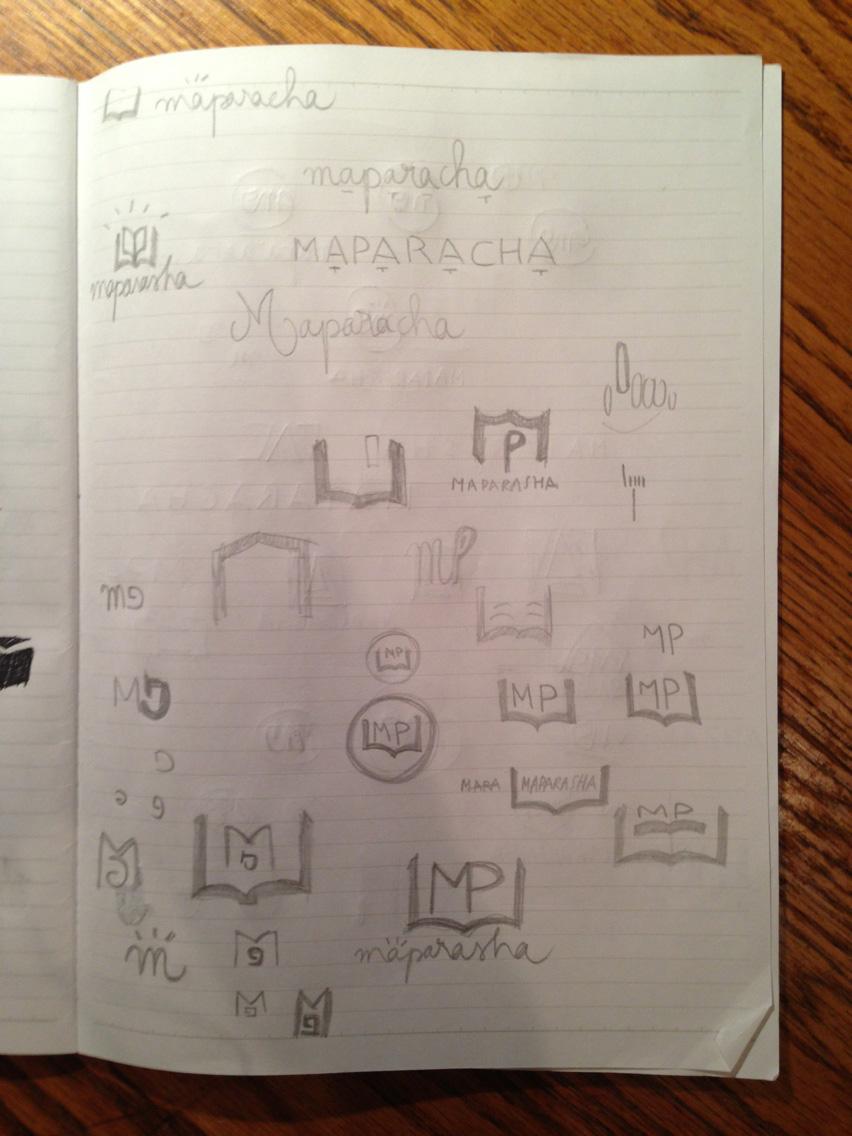 maparacha
maparacha
MAPARACHA
maparasha
Maparacha
P
MAPARASHA
MP
MP
MP
MP
MP
MP
M
MAPA
MAPARASHA
MP
M
MP
maparasha
m
M
M
M